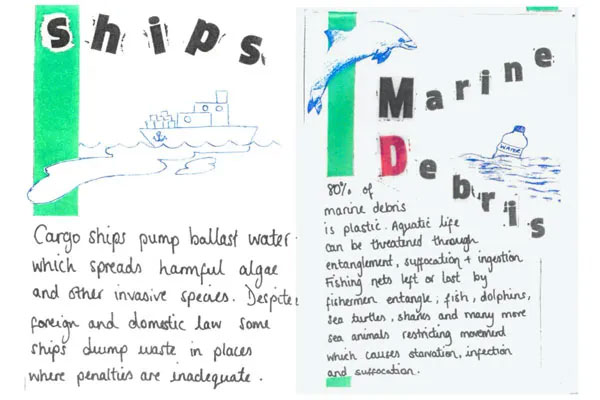 ships
Cargo ships pump ballast water
which spreads harmful algae
and other invasive species. Despite
foreign and domestic law some
ships dump waste in places
where penalties are inadequate.
Marine
Debris
WATER
80% of
marine debris
is plastic. Aquatic life
can be threatened through
entanglement, suffocation + ingestion
Fishing nets left or lost by
fishermen entangle; fish, dolphins,
sea turtles, sharks and many more
sea animals restricting movement
which causes starvation, infection
and suffocation.